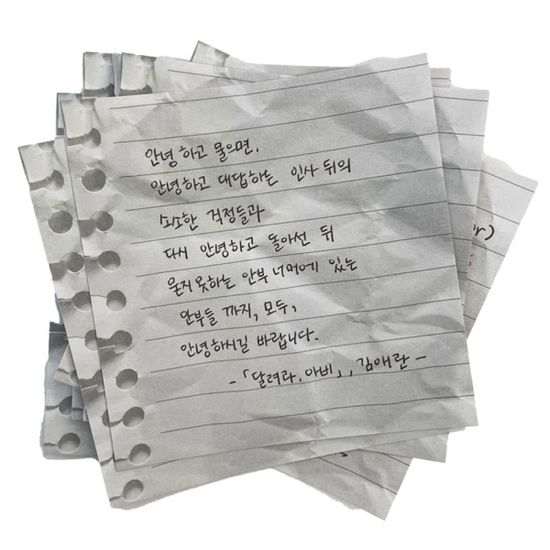 안녕 하고 물으면,
안녕하고 대답하는 인사 뒤의
소소한 걱정들과
다시 안녕하고 돌아선 뒤
묻지 못하는 안부 너머에 있는
안부들 까지, 모두,
안녕하시길 바랍니다.
-「달려라, 아비」, 김애란-